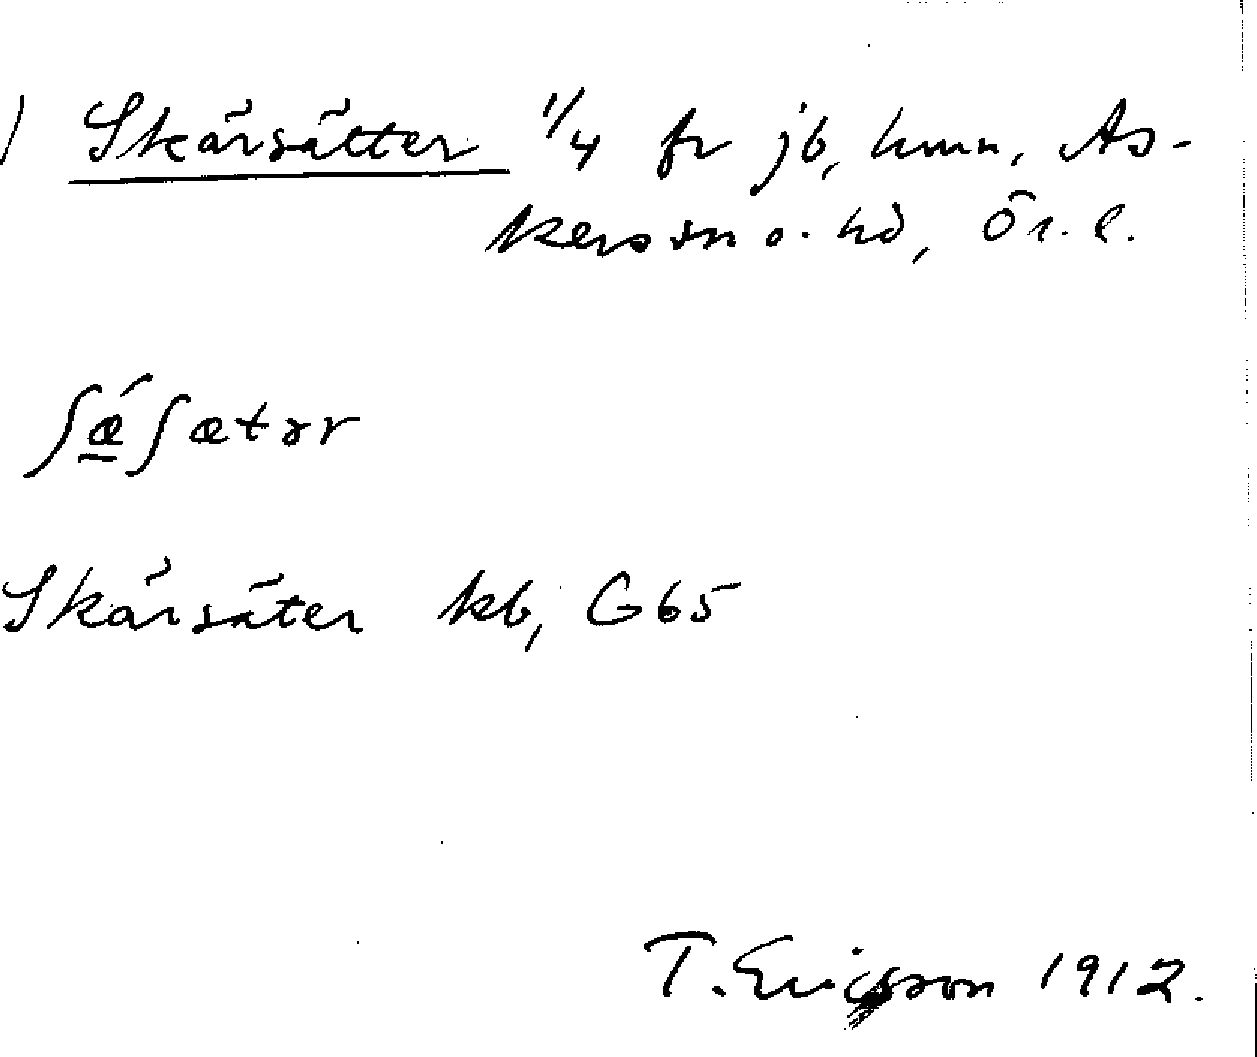 ) Skärsätter 1/4 fr jb, hmn, As-
kers sn o. hd, Ör. l.
ʃǽʃætər
Skärsäter kb, G65
T. Ericsson 1912.